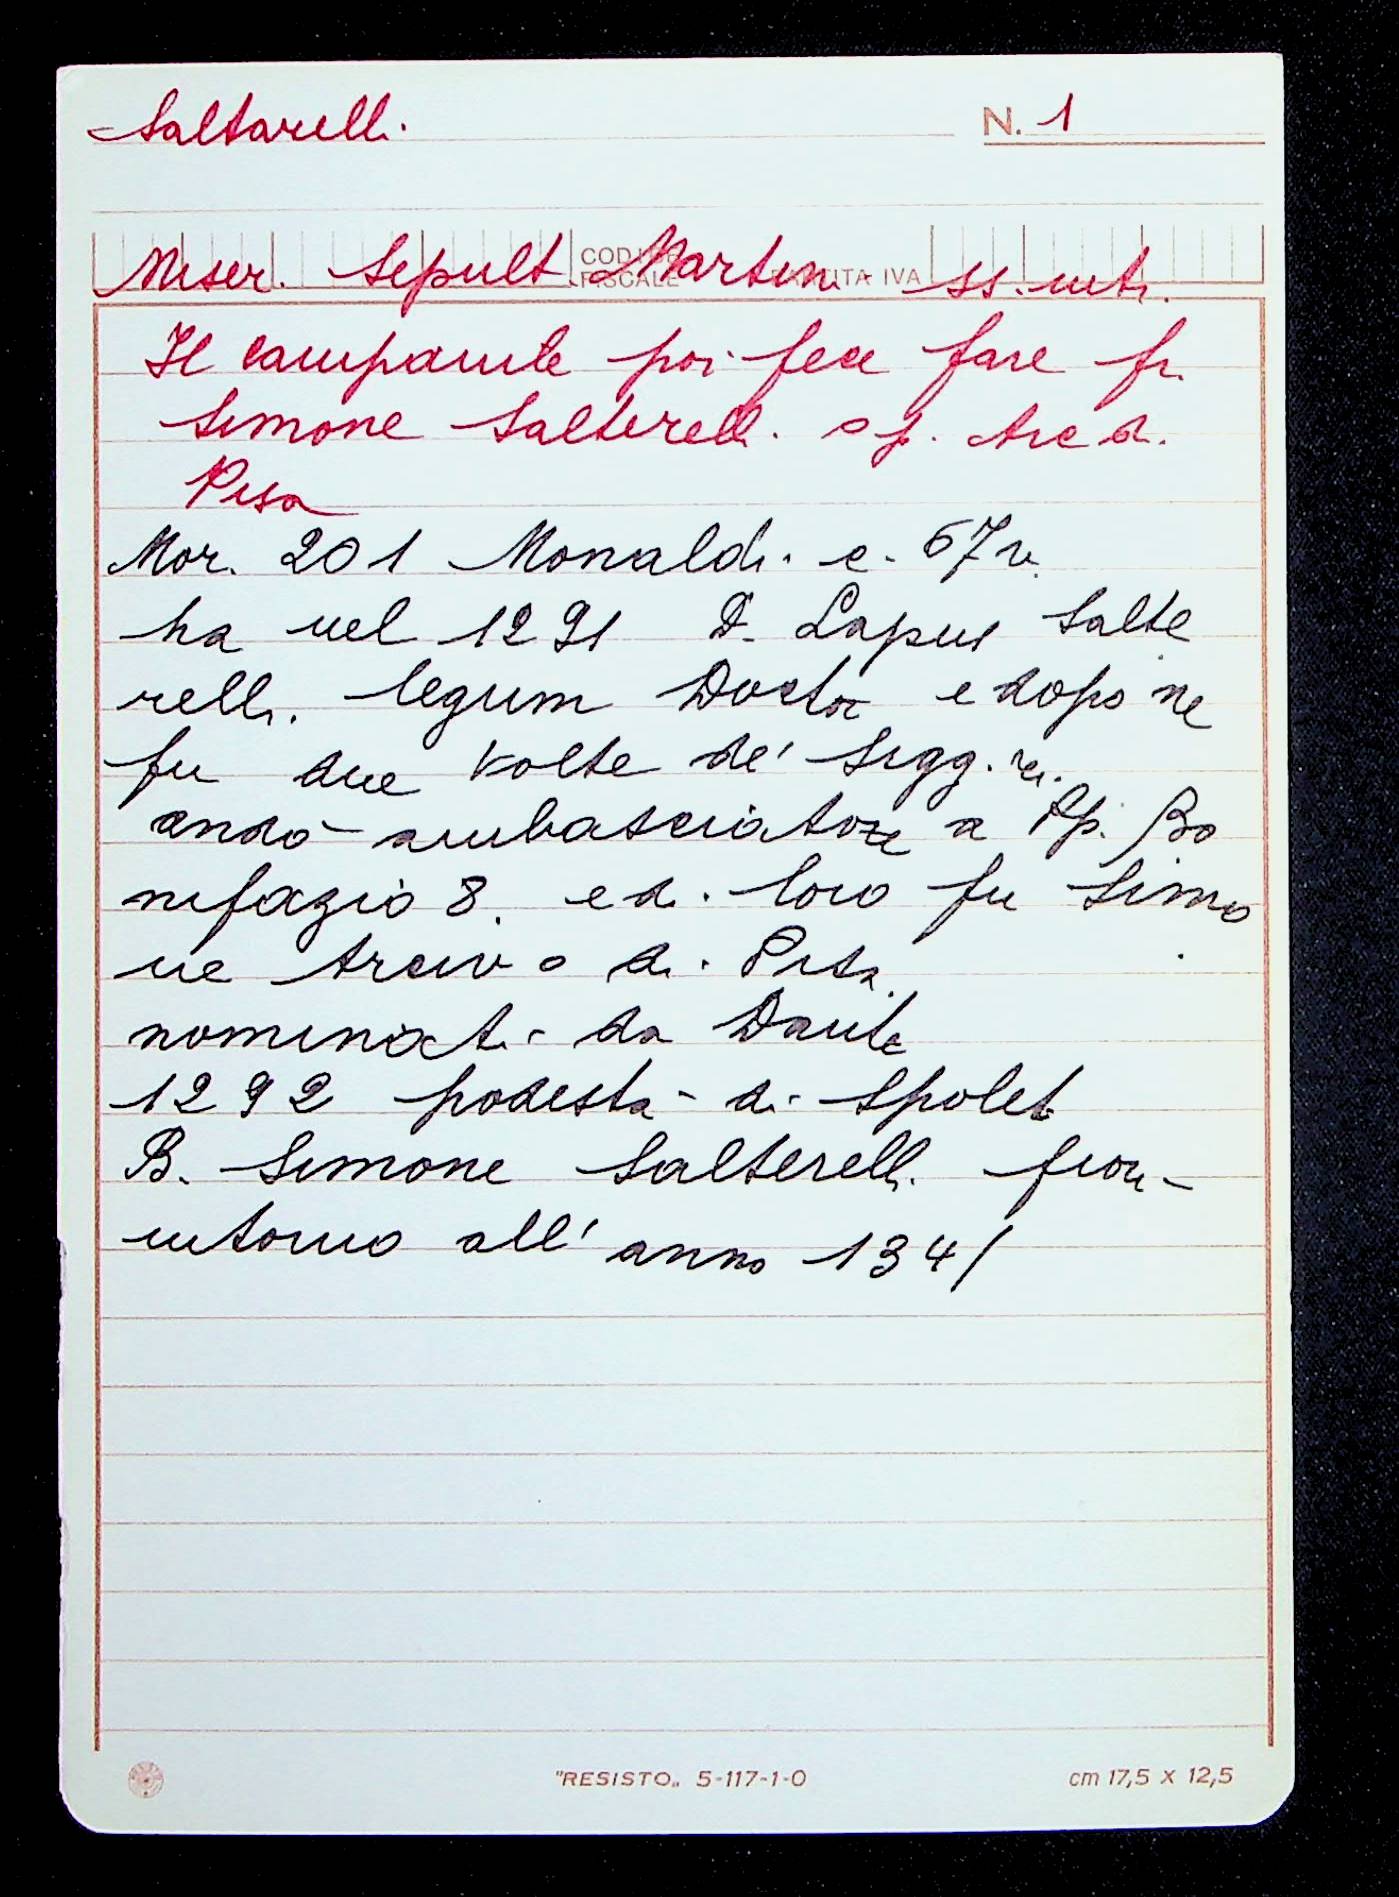 Saltarelli.
N. 1
CODICE FISCALE PARTITA IVA
Miser. Sepult Martin ss. int.
Il campanile poi fece fare fr.
Simone Salterelli. o p. Arc di.
Pisa
Mor. 201 Monaldi. c. 67v.
ha nel 1291 D. Lapus Salte
relli. legum Doctor e dopo ne
fu due volte de' Sigg.ri.
andò ambasciatore a Pp. Bo
nifazio 8. e di loro fu Simo
ne Arciv o di Pisa
nominati da Dante
1292 podestà di Spolet
B. Simone Salterelli fiorì
intorno all' anno 1341
"RESISTO„ 5-117-1-0
cm 17,5 x 12,5